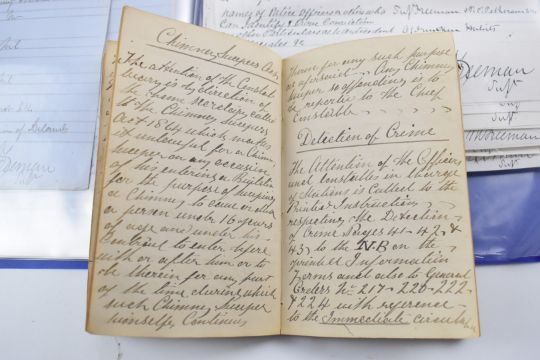 Chimney Sweepers Act,
The attention of the Constab
ulary is by direction of
the home secretary called
to the Chimney Sweepers
Act 1864 which makes
it unlawful for a Chim
sweeper on any occasion
of his entering a
for the purpose of sweeping
a Chimney to cause or allow
a person under 16 years
of age and under his
Control to enter before
with or after him or to
be therein for any part
of the time during which
such Chimney Sweeper
himself Continues
therein for any such purpose
as aforesaid. Any Chimney
sweeper so offending is to
be reported to the Chief
Constable
Detection of Crime
The Attention of the Officers
and Constables in charge
of Stations is Called to the
Printed Instructions
respecting the Detection
of Crime Pages 41-42 &
43 to the N.B on the
printed Information
Forms and also to General
Orders No 217-220-222
& 224 with reference
to the Immediate circula
names of Police Officers or others who
Can Identify & Prove Conviction
Supt Freeman
Freeman
Supt